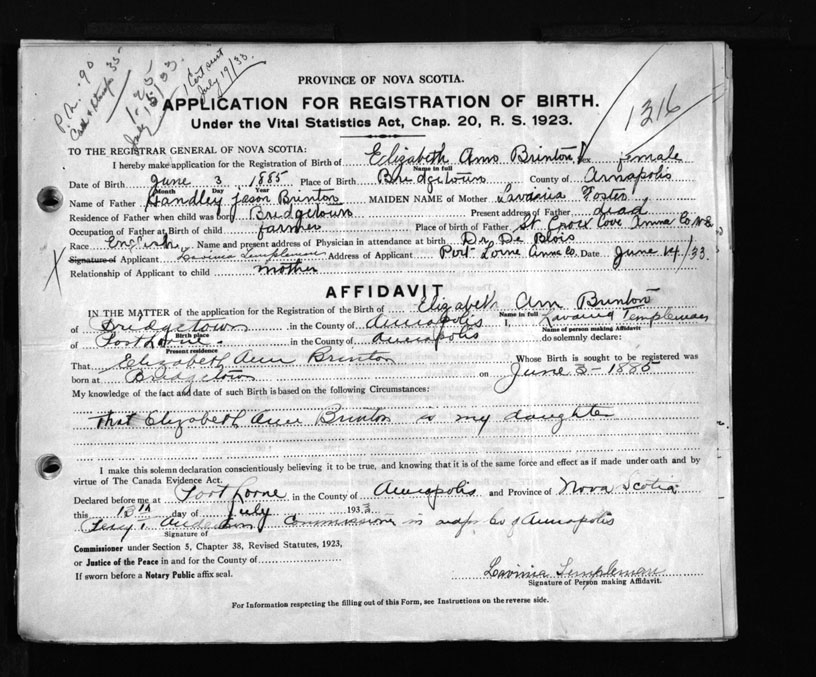 P.N. .90
Cash & Stamps 35
1.25
July 15/33
1 Cert sent
July 19/33.
1316
PROVINCE OF NOVA SCOTIA.
APPLICATION FOR REGISTRATION OF BIRTH.
Under the Vital Statistics Act, Chap. 20, R. S. 1923.
TO THE REGISTRAR GENERAL OF NOVA SCOTIA:
I hereby make application for the Registration of Birth of Elizabeth Ann Brinton Sex Female
Name in full
Date of Birth June 3 1885 Place of Birth Bridgetown County of Annapolis
Month Day Year
Name of Father Handley Jason Brinton MAIDEN NAME of Mother Lavania Foster
Residence of Father when child was born Bridgetown Present address of Father dead
Occupation of Father at Birth of child farmer Place of birth of Father St Croix Cove Anna Co N.S
Race English Name and present address of Physician in attendance at birth Dr De Blois
Signature of Applicant Lavinia Templeman Address of Applicant Port Lorne Anna Co. Date June 14/33.
Relationship of Applicant to child mother
AFFIDAVIT
IN THE MATTER of the application for the Registration of the Birth of Elizabeth Ann Brinton
Name in full
of Bridgetown in the County of Annapolis I, Lavania Templeman
Birth place Name of person making Affidavit
of Port Lorne in the County of Annapolis do solemnly declare:
Present residence
That Elizabeth Ann Brinton Whose Birth is sought to be registered was
born at Bridgetown on June 3 - 1885
My knowledge of the fact and date of such Birth is based on the following Circumstances:
that Elizabeth Ann Brinton is my daughter
I make this solemn declaration conscientiously believing it to be true, and knowing that it is of the same force and effect as if made under oath and by
virtue of The Canada Evidence Act.
Declared before me at Port Lorne in the County of Annapolis and Province of Nova Scotia
this 13th day of July 1933
Percy T. Anderson Commissioner in & for Co of Annapolis
Signature of
Commissioner under Section 5, Chapter 38, Revised Statutes, 1923,
or Justice of the Peace in and for the County of
If sworn before a Notary Public affix seal.
Lavinia Templeman
Signature of Person making Affidavit.
For Information respecting the filling out of this Form, see Instructions on the reverse side.